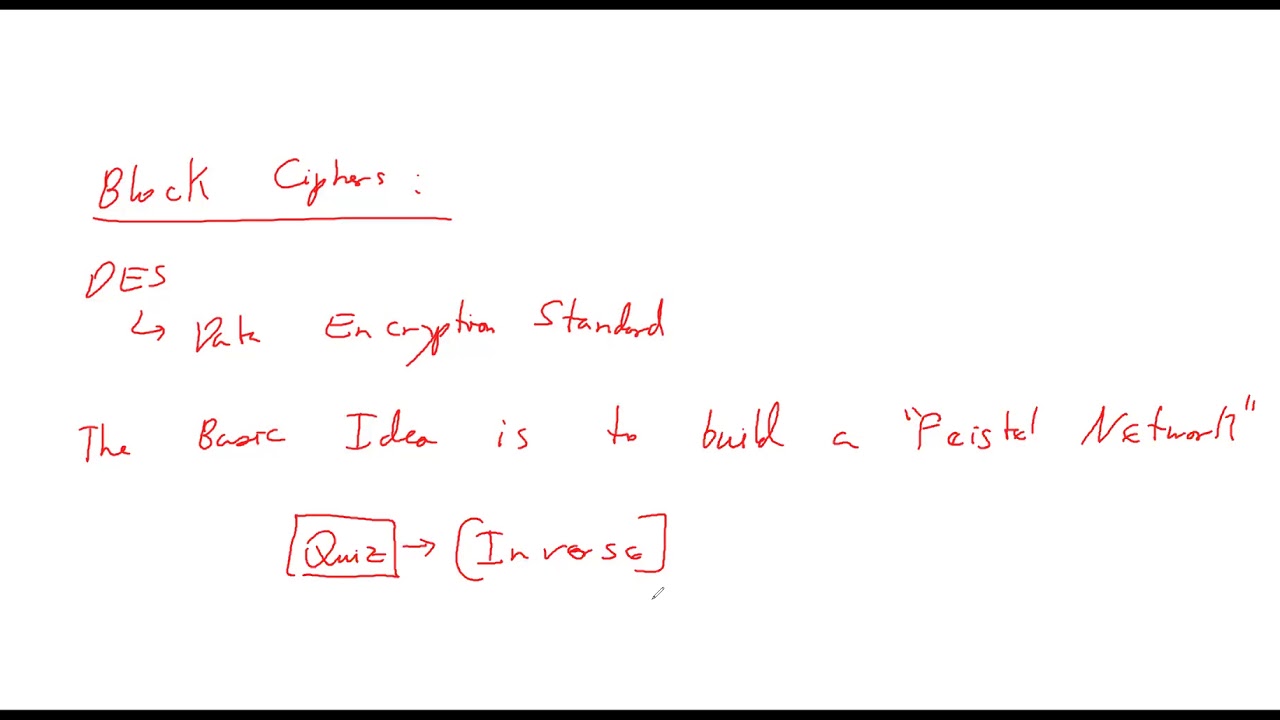 Block Ciphers:
DES
↳ Data Encryption Standard
The Basic Idea is to build a "Feistel Network"
Quiz → [Inverse]